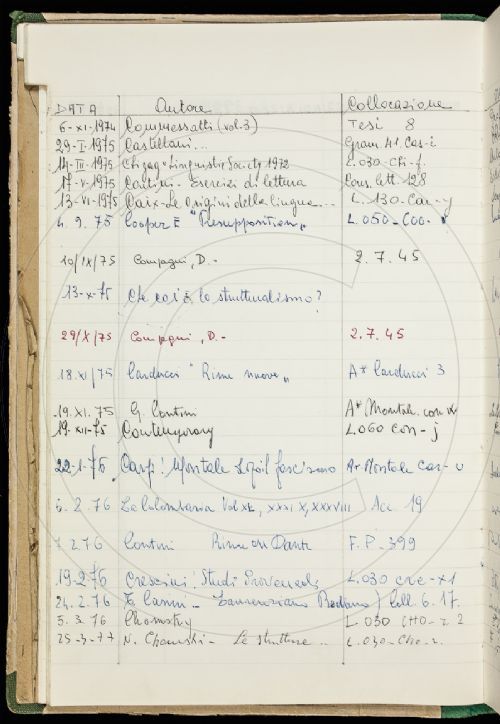 DATA Autore Collocazione
6-XI-1974 Commessatti (vol. 3) Tesi 8
29-I-1975 Castellani... Gram. 41. Cas-i
14-III-1975 Chicago Linguistic Society 1972 L.030-Chi-f.
17-V-1975 Contini - Esercizi di lettura Cons. lett. 128
13-VII-1975 Caix-Le origini della lingua... L. 130-Cai-y
4. 9. 75 Cooper E "Presupposition" L.050-Coo-
10/IX/75 Compagni, D.- 2.7.45
13-X-75 Che cos'è lo strutturalismo?
29/X/75 Compagni, D.- 2.7.45
18.XI/75 Carducci "Rime nuove" A* Carducci 3
19.XI.75 G. Contini A* Montale. con
19-XII-75 Contemporary L.060 con-j
22-1-76 Carpi: Montale dopo il fascismo A* Montale Car-u
5. 2. 76 La Colombaria Vol XL, XXXIX, XXXVIII Acc. 19
7 2.76 Contini Rime di Dante F.P. 399
19-2-76 Crescini: Studi Provenzali L.030 cre-x1
24.2.76 E. Casini - Coll 6.17.
5. 3. 76 Chomsky L.030 CHO-z 2
25-3-77 N. Chomski - Le strutture.. L.030-Cho-z.